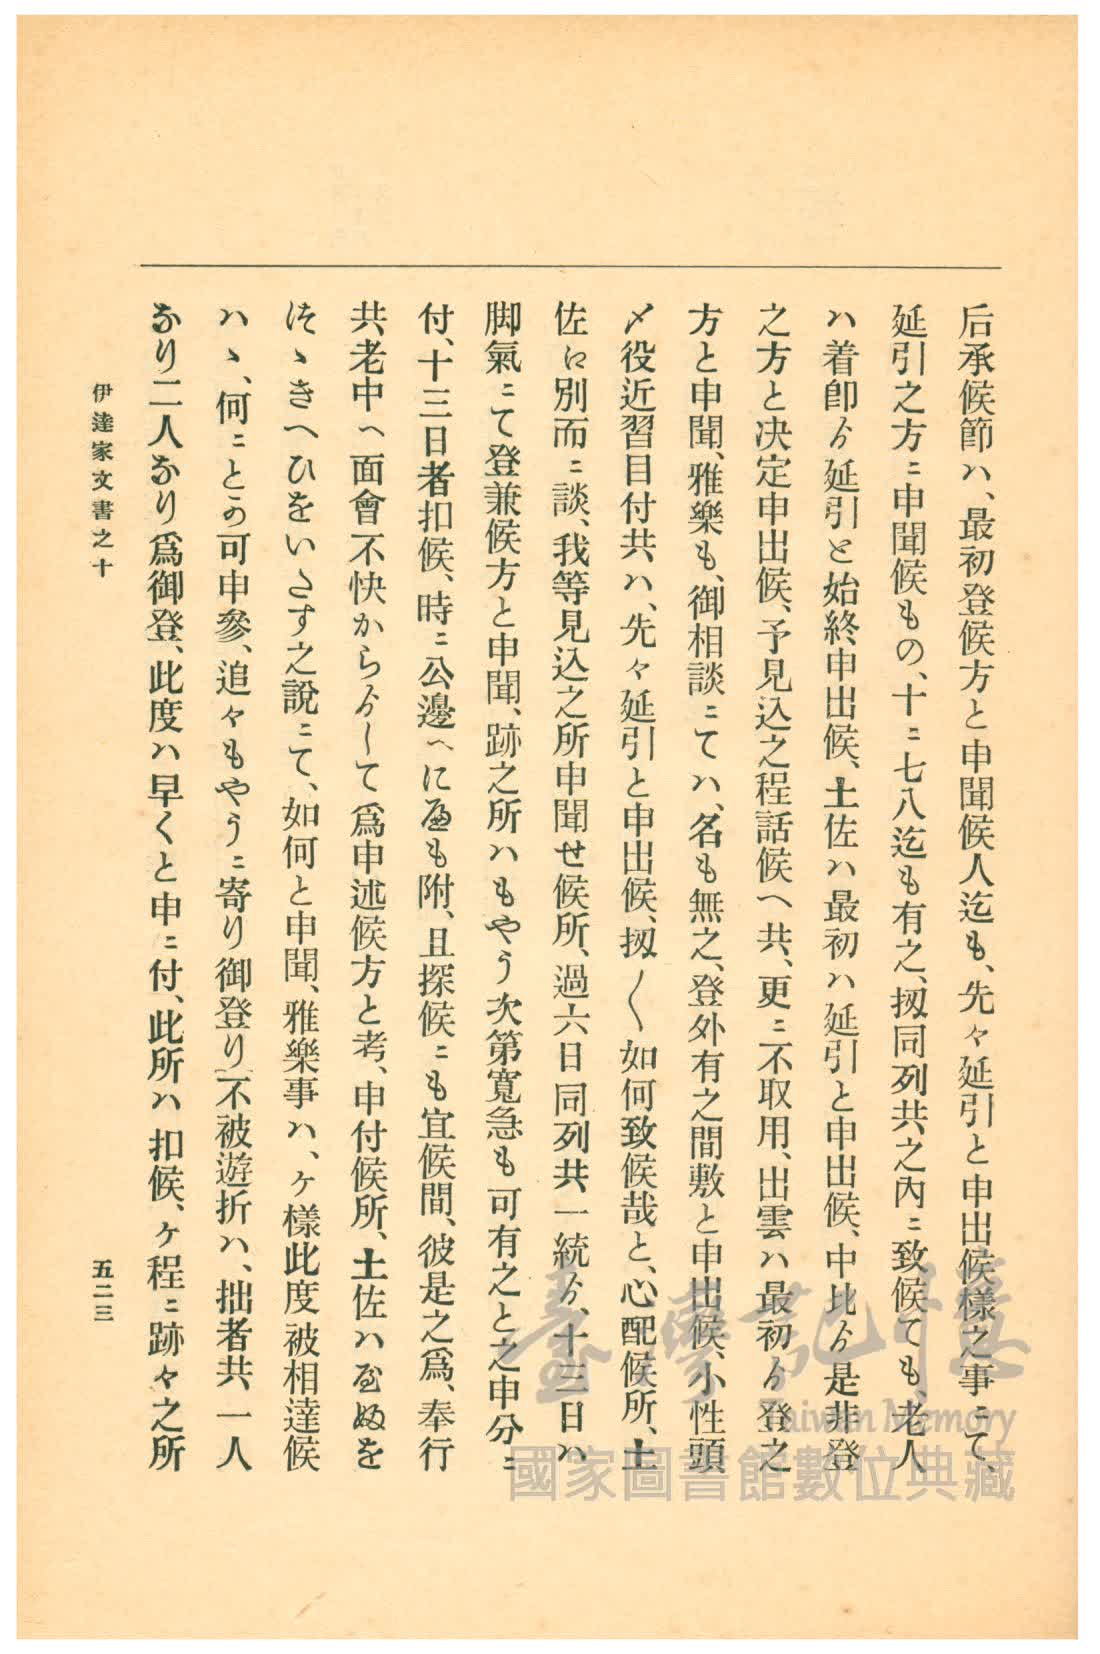 后承候節ハ、最初登候方と申聞候人迄も、先々延引と申出候樣之事ニて、
延引之方ニ申聞候もの、十ニ七八迄も有之、扨同列共之內ニ致候ても、老人
ハ着卽ゟ延引と始終申出候、土佐ハ最初ハ延引と申出候、中比ゟ是非登
之方と決定申出候、予見込之程話候ヘ共、更ニ不取用、出雲ハ最初ゟ登之
方と申聞、雅樂も、御相談ニてハ、名も無之、登外有之間敷と申出候、小性頭
〆役近習目付共ハ、先々延引と申出候、扨〱如何致候哉と、心配候所、土
佐に別而ニ談、我等見込之所申聞せ候所、過六日同列共一統ゟ、十三日ハ
脚氣ニて登兼候方と申聞、跡之所ハもやう次第寬急も可有之と之申分ニ
付、十三日者扣候、時ニ公邊ヘに為も附、且探候ニも宜候間、彼是之爲、奉行
共老中ヘ面會不快からゟして爲申述候方と考、申付候所、土佐ハ
きへひをいたす之說ニて、如何と申聞、雅樂事ハ、ケ樣此度被相達候
ハヽ、何ことの可申參、追々もやうニ寄り御登り不被遊折ハ、拙者共一人
なり二人なり爲御登、此度ハ早くと申ニ付、此所ハ扣候、ケ程ニ跡々之所
伊達家文書之十
五二三
臺灣記憶
Taiwan Memory
國家圖書館數位典藏